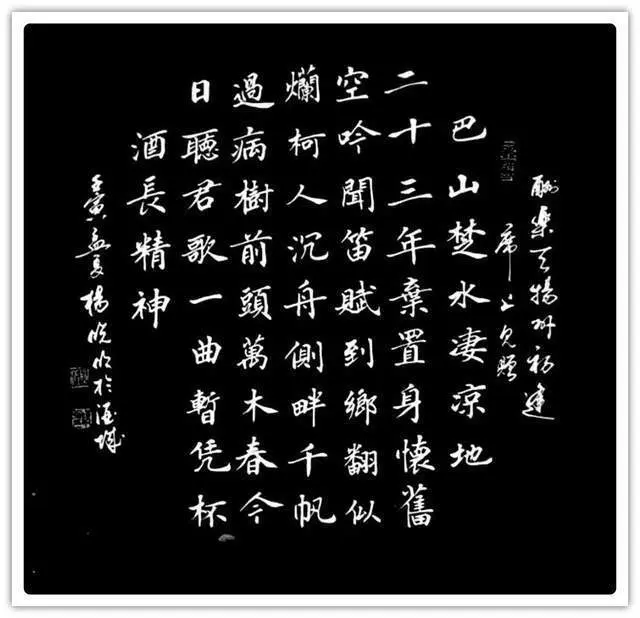 酬樂天揚州初逢
席上見贈
巴山楚水凄凉地
二十三年棄置身懷舊
空吟聞笛賦到鄉翻似
爛柯人沉舟側畔千帆
過病樹前頭萬木春今
日聽君歌一曲暫凭杯
酒長精神
壬寅孟夏楊於城